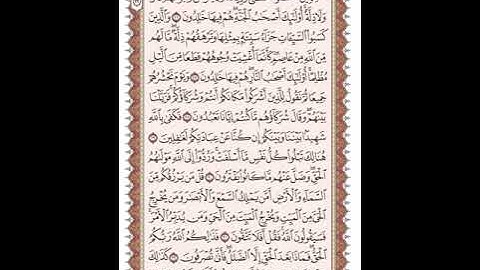 وَلَا ذِلَّةٌ أُوْلَٰٓئِكَ أَصْحَٰبُ ٱلْجَنَّةِ هُمْ فِيهَا خَٰلِدُونَ ٢٦ وَٱلَّذِينَ
كَسَبُواْ ٱلسَّيِّـَٔاتِ جَزَآءُ سَيِّئَةٍۭ بِمِثْلِهَا وَتَرْهَقُهُمْ ذِلَّةٌ مَّا لَهُم
مِّنَ ٱللَّهِ مِنْ عَاصِمٍ كَأَنَّمَآ أُغْشِيَتْ وُجُوهُهُمْ قِطَعًا مِّنَ ٱلَّيْلِ
مُظْلِمًا أُوْلَٰٓئِكَ أَصْحَٰبُ ٱلنَّارِ هُمْ فِيهَا خَٰلِدُونَ ٢٧ وَيَوْمَ نَحْشُرُهُمْ
جَمِيعًا ثُمَّ نَقُولُ لِلَّذِينَ أَشْرَكُواْ مَكَانَكُمْ أَنتُمْ وَشُرَكَآؤُكُمْ فَزَيَّلْنَا
بَيْنَهُمْ وَقَالَ شُرَكَآؤُهُم مَّا كُنتُمْ إِيَّانَا تَعْبُدُونَ ٢٨ فَكَفَىٰ بِٱللَّهِ
شَهِيدًۢا بَيْنَنَا وَبَيْنَكُمْ إِن كُنَّا عَنْ عِبَادَتِكُمْ لَغَٰفِلِينَ ٢٩
هُنَالِكَ تَبْلُواْ كُلُّ نَفْسٍ مَّآ أَسْلَفَتْ وَرُدُّوٓاْ إِلَى ٱللَّهِ مَوْلَىٰهُمُ
ٱلْحَقِّ وَضَلَّ عَنْهُم مَّا كَانُواْ يَفْتَرُونَ ٣٠ قُلْ مَن يَرْزُقُكُم مِّنَ
ٱلسَّمَآءِ وَٱلْأَرْضِ أَمَّن يَمْلِكُ ٱلسَّمْعَ وَٱلْأَبْصَٰرَ وَمَن يُخْرِجُ
ٱلْحَيَّ مِنَ ٱلْمَيِّتِ وَيُخْرِجُ ٱلْمَيِّتَ مِنَ ٱلْحَيِّ وَمَن يُدَبِّرُ ٱلْأَمْرَ
فَسَيَقُولُونَ ٱللَّهُ فَقُلْ أَفَلَا تَتَّقُونَ ٣١ فَذَٰلِكُمُ ٱللَّهُ رَبُّكُمُ
ٱلْحَقُّ فَمَاذَا بَعْدَ ٱلْحَقِّ إِلَّا ٱلضَّلَٰلُ فَأَنَّىٰ تُصْرَفُونَ ٣٢ كَذَٰلِكَ